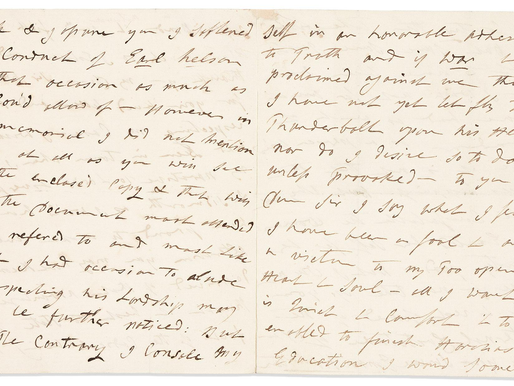 & I assure you I softened
Conduct of Earl Nelson
that occasion as much as
Cou'd allow of – However in
memorial I did not mention
at all as you will see
the enclosed Copy & that will
the Document most attended
refered to and most like
I had occasion to allude
specting his Lordship may
be further noticed: But
The Contrary I Console my
self in an honorable adher
to Truth and if War
proclaimed against me th
I have not yet let fly
Thunderbolt upon his He
nor do I desire so to do
unless provoked – to you
Dear Sir I say what I fe
I have been a fool &
a victim to my Too open
Heart & Soul – all I want
is Quiet & Comfort & to
enabled to finish Horatias
Education I would some